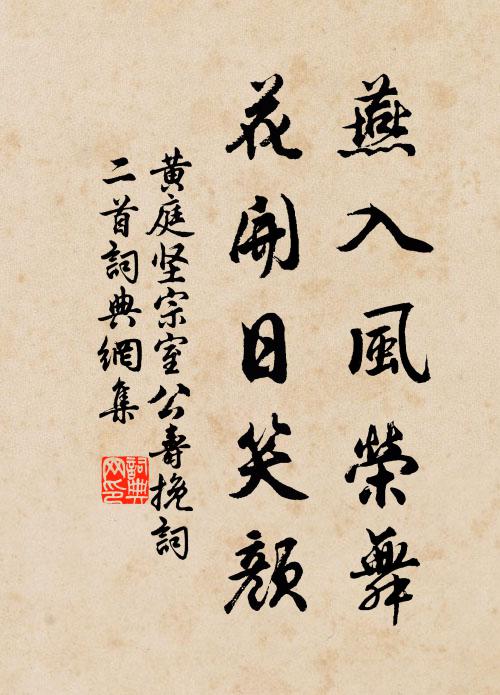 燕入風榮舞
花開日笑顔
黄庭坚宗室公壽挽詞
二首詞典網集
詞典
网印